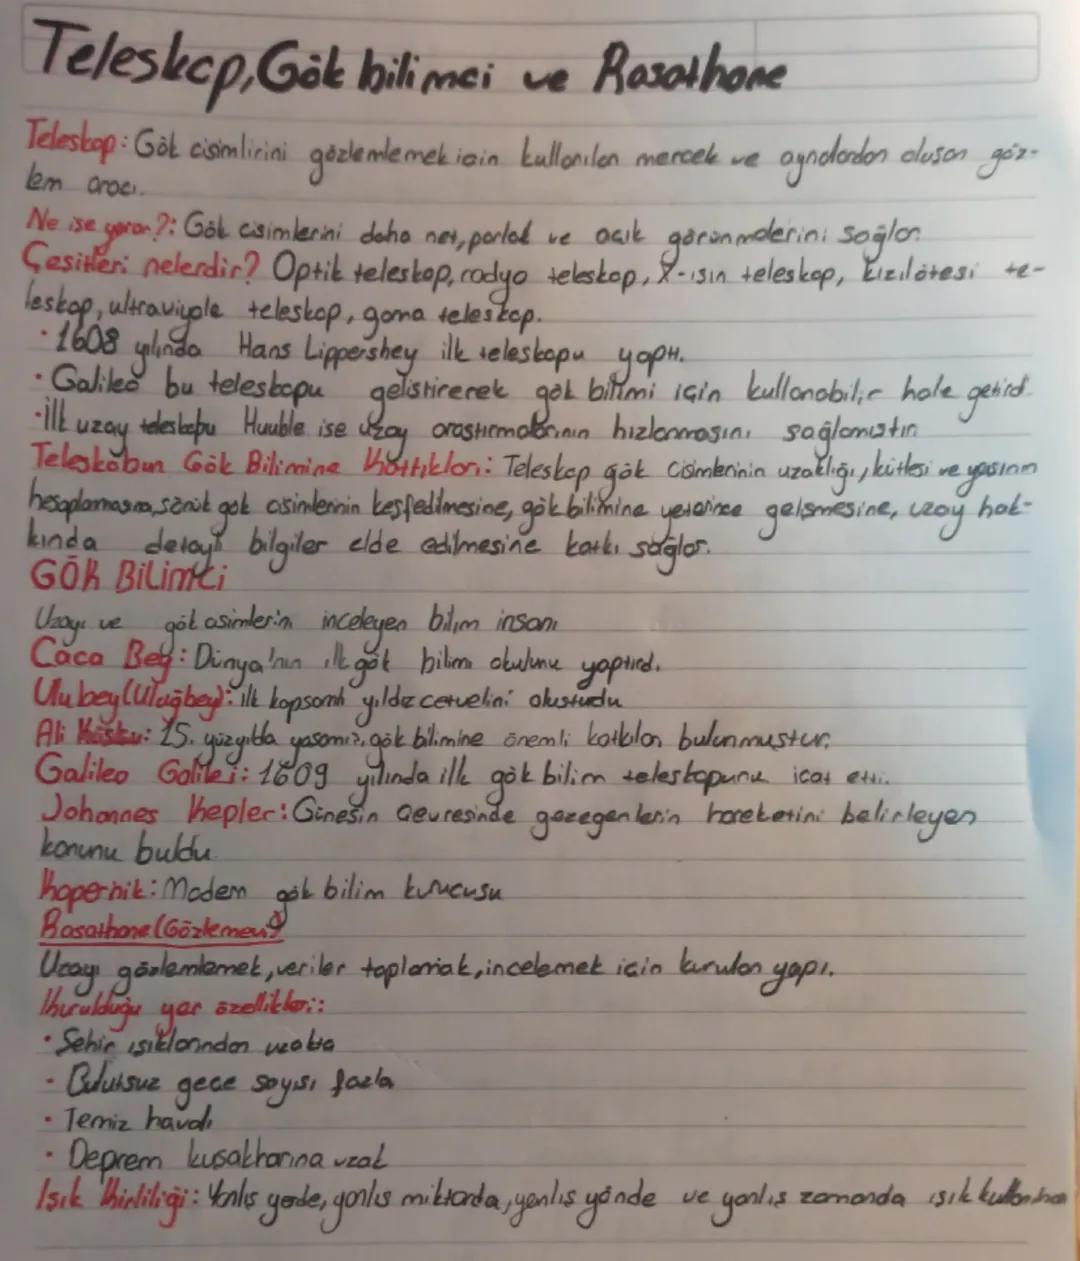 Teleskop, Gök bilimci ve Rasathane
Teleskop: Gök cisimlirini gözlemlemek için kullanılan mercek ve aynalardan oluşan göz-
lem aracı.
Ne işe yarar?: Gök cisimlerini daha net, parlak ve açık görünmelerini sağlar
Çeşitleri nelerdir? Optik teleskop, radyo teleskop, X-ışın teleskop, kızılötesi te-
leskop, ultraviyole teleskop, gama teleskop.
· 1608 yılında Hans Lippershey ilk teleskopu yaptı.
· Galileo bu teleskopu geliştirerek gök bilimi için kullanabilir hale getird.
· İlk uzay teleskopu Huuble ise uzay araştırmalarının hızlanmasını sağlamıştır
Teleskobun Gök Bilimine Kattıkları: Teleskop gök cisimlerinin uzaklığı, kütlesi ve yaşının
hesaplamasına, sönük gök cisimlerinin keşfedilmesine, gök bilimine gelişmesine, uzay hak-
kında detaylı bilgiler elde edilmesine katkı sağlar.
GÖK BİLİMCİ
Uzayı ve gök cisimlerin inceleyen bilim insanı
Caca Bey: Dünya'nın ilk gök bilim okulunu yaptırd.
Ulubey (Uluğbey): ilk kapsamlı yıldız cetvelini oluşturdu
Ali Kuşçu: 15. yüzyılda yaşamış, gök bilimine önemli katkıları bulunmuştur.
Galileo Galilei: 1609 yılında ilk gök bilim teleskopunu icat etti.
Johannes Kepler: Güneşin çevresinde gezegenlerin hareketini belirleyen
kanunu buldu.
Kopernik: Modern gök bilim kurucusu
Rasathane (Gözlemevi)
Uzayı gözlemlemek, veriler toplamak, incelemek için kurulan yapı.
Kurulduğu yer özellikleri:
· Şehir ışıklarından uzakta
· Bulutsuz gece sayısı fazla
· Temiz havalı
· Deprem kuşaklarına uzak
Işık Kirliliği: Yanlış yerde, yanlış miktarda, yanlış yönde ve yanlış zamanda ışık